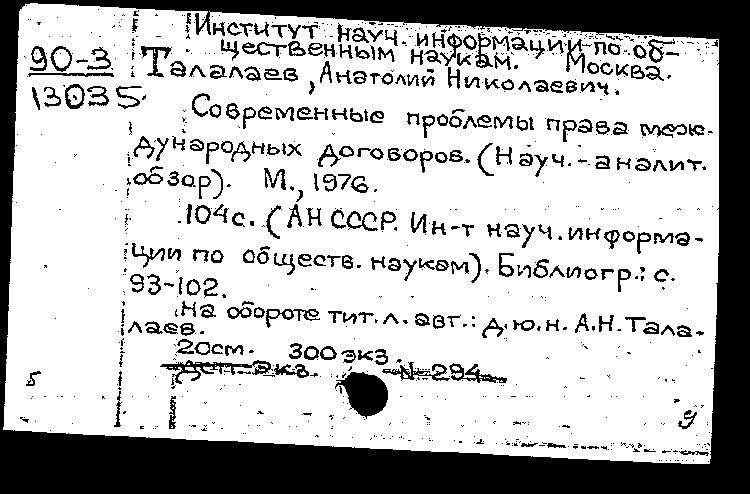 Институт науч. информации по об-
щественным наукам. Москва.
90-3
13035
Талалаев, Анатолий Николаевич.
Современные проблемы права меж-
дународных договоров. (Науч.-аналит.
обзор). М., 1976.
104с. (АН СССР. Ин-т науч. информа-
ции по обществ. наукам). Библиогр.: с.
93-102.
На обороте тит. л. авт.: д.ю.н. А.Н. Тала-
лаев.
20см. 300 экз.
Деп. экз. N-294
5